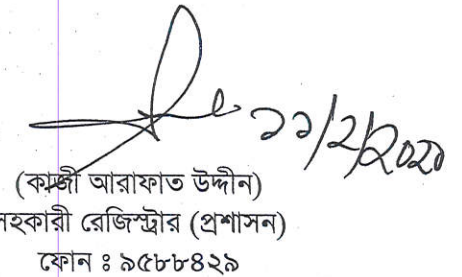 ১১/২/২০২০
(কাজী আরাফাত উদ্দীন)
সহকারী রেজিস্ট্রার (প্রশাসন)
ফোন ঃ ৯৫৮৮৪২৯